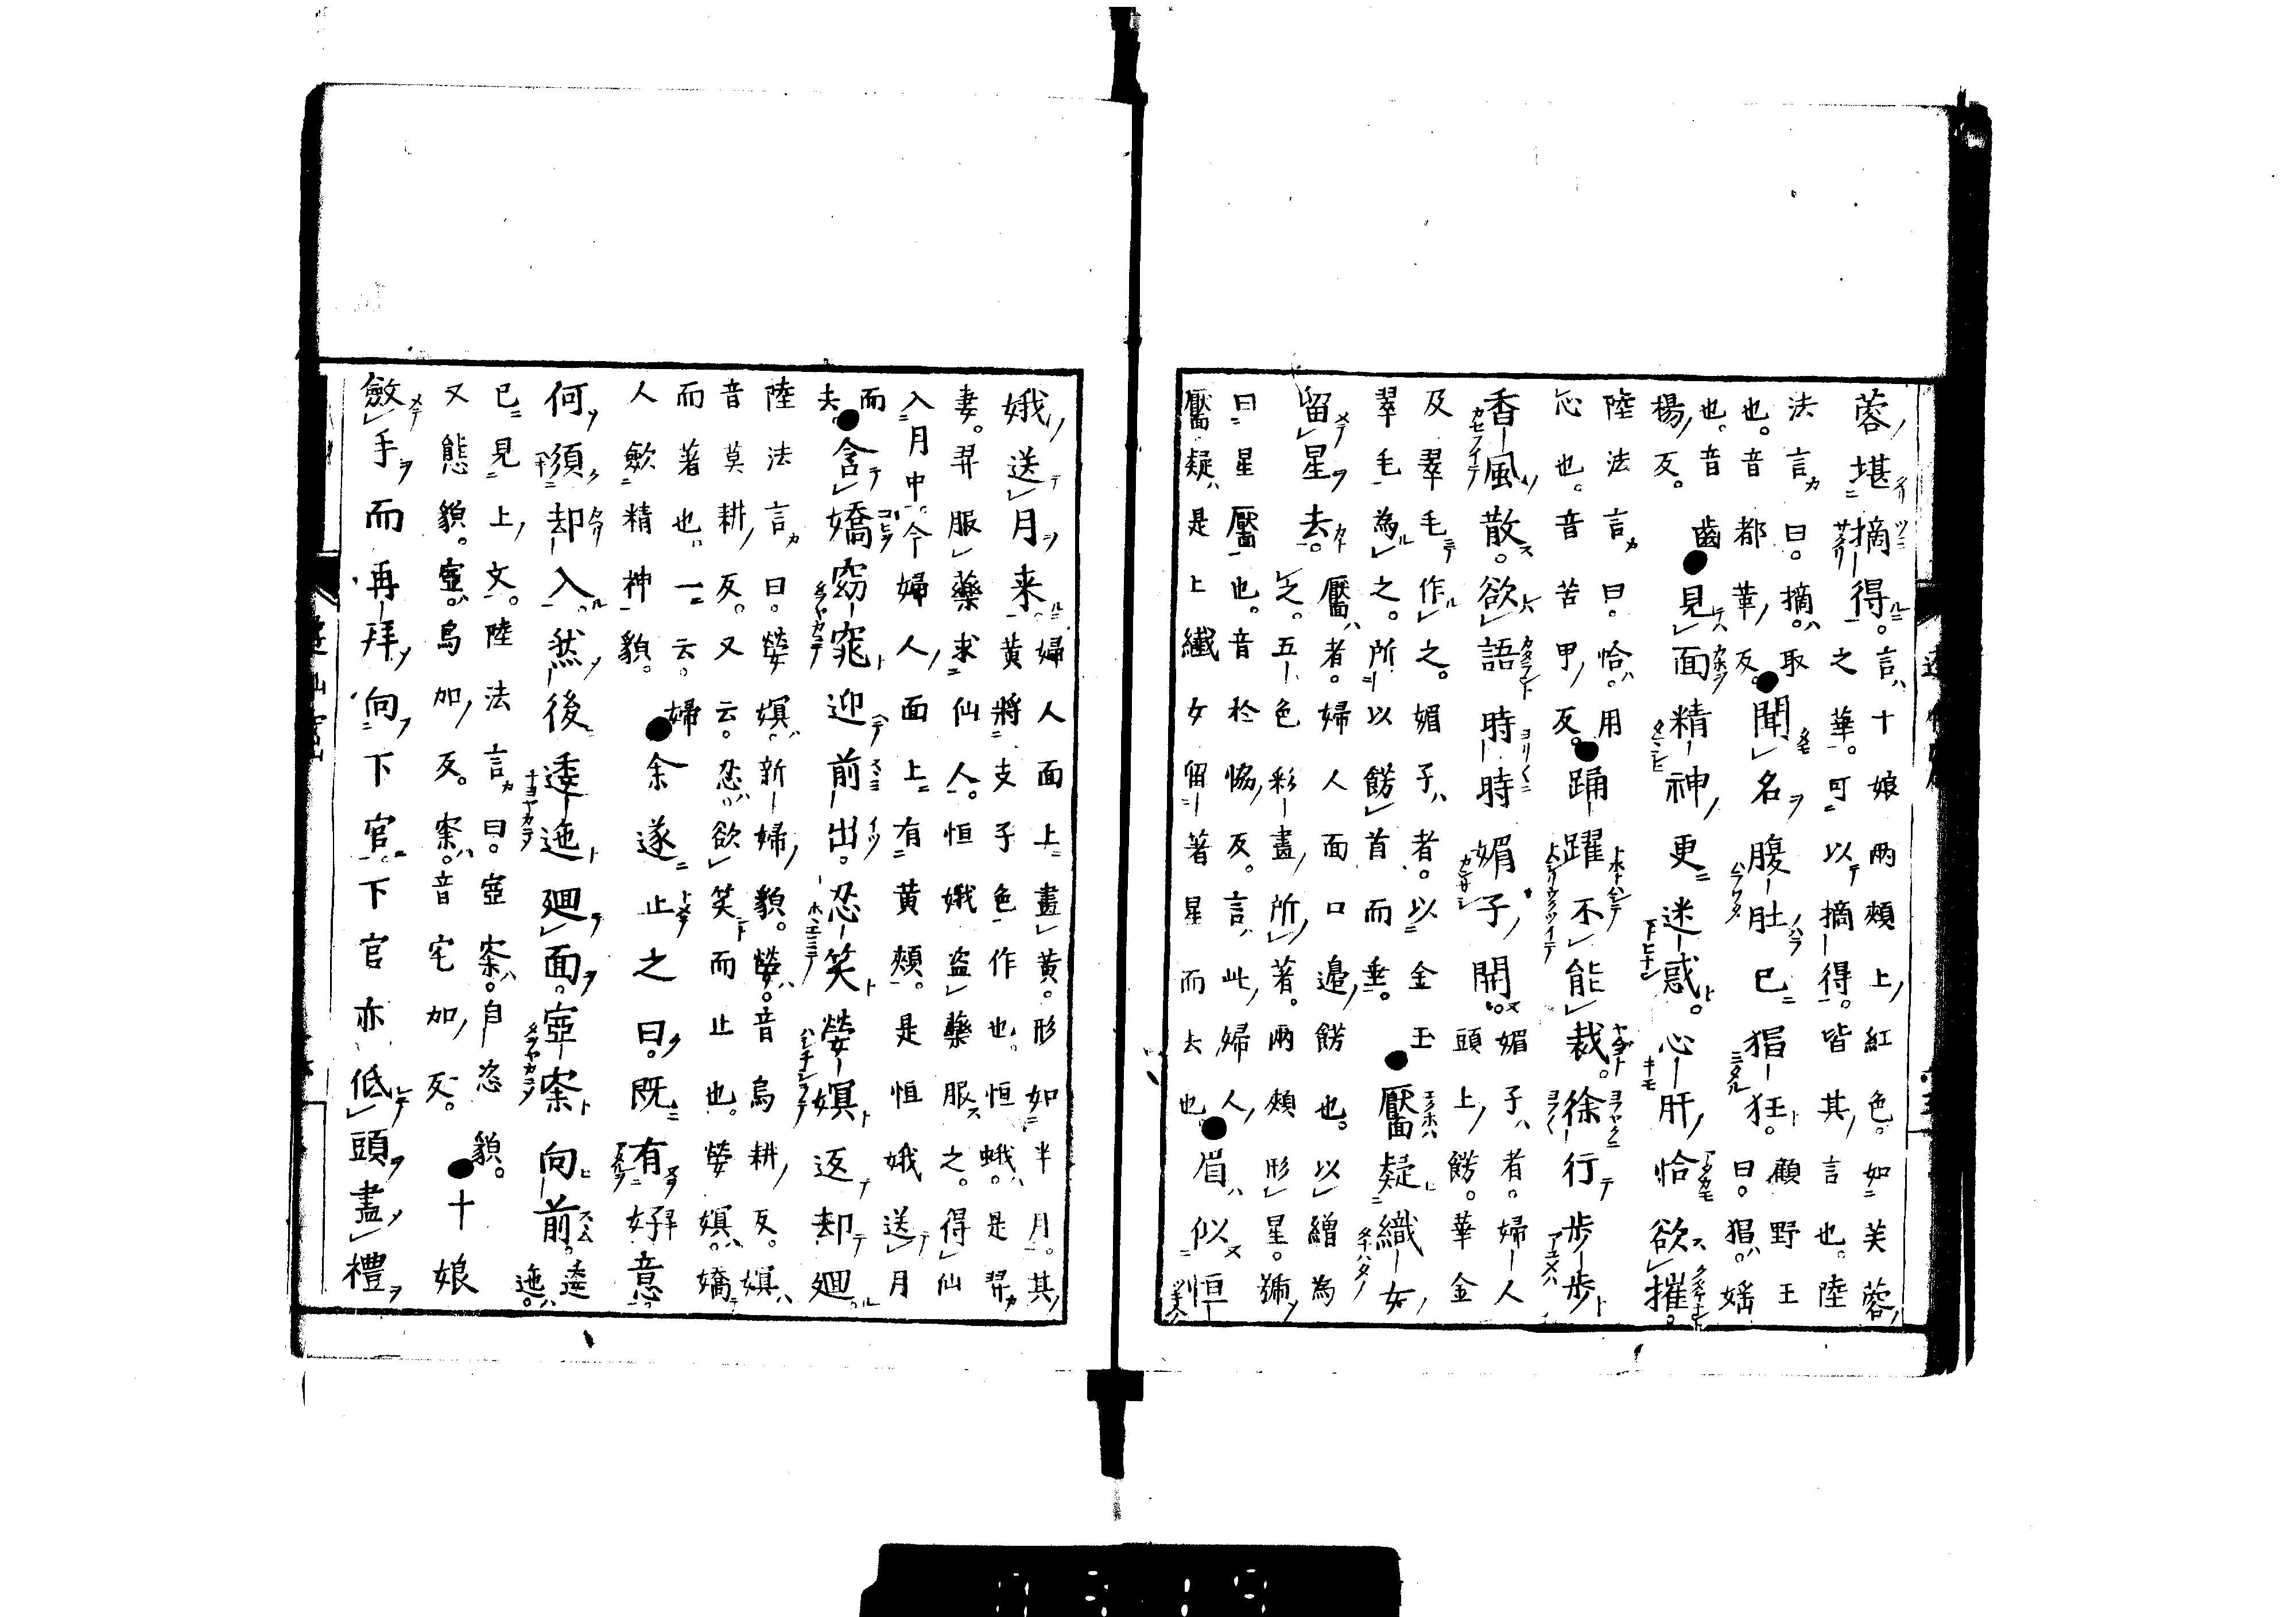 蓉堪摘得。言十娘兩頰上紅色。如芙蓉
之華。可以摘得。皆其言也。陸
法言曰。摘。取
也。音都華反。
聞名腹肚已猖狂。顧野王
曰。猖。媱
也。音齒
楊反。
見面精神更迷惑。心肝恰欲摧。
陸法言曰。恰。用
心也。音苦甲反。
踊躍不能裁。徐行步步
香風散。欲語時時媚子開。媚子者。婦人
頭上餝。華金
及翠毛作之。媚子者。以金玉
翠毛為之。所以餝首而垂。
靨疑織女
留星去。靨者。婦人面口邊餝也。以繒為
之。五色彩畫所著。兩頰形星。獮
曰星靨也。音於恊反。言此婦人
靨疑是上織女留著星而去也。
眉似恒
娥送月来。婦人面上畫黃。形如半月。其
黃將支子色作也。恒蛾。是羿
妻。羿服藥求仙人。恒娥盗藥服之。得仙
入月中。今婦人面上有黃頰。是恒娥送月
而
去。
含嬌窈窕迎前出。忍笑嫈嫇返却廻。
陸法言曰。嫈嫇。新婦貌。嫈。音烏耕反。嫇
音莫耕反。又云。忍欲笑而止也。嫈嫇。嬌
而著也。一云。婦
人歛精神貌。
余遂止之曰。既有好意
何須却入。然後逶迤廻面。向前。逶
迤。
已見上文。陸法言曰。自恣貌。
又態貌。烏加反。音宅加反。
十娘
斂手而再拜向下官。下官亦低頭盡禮